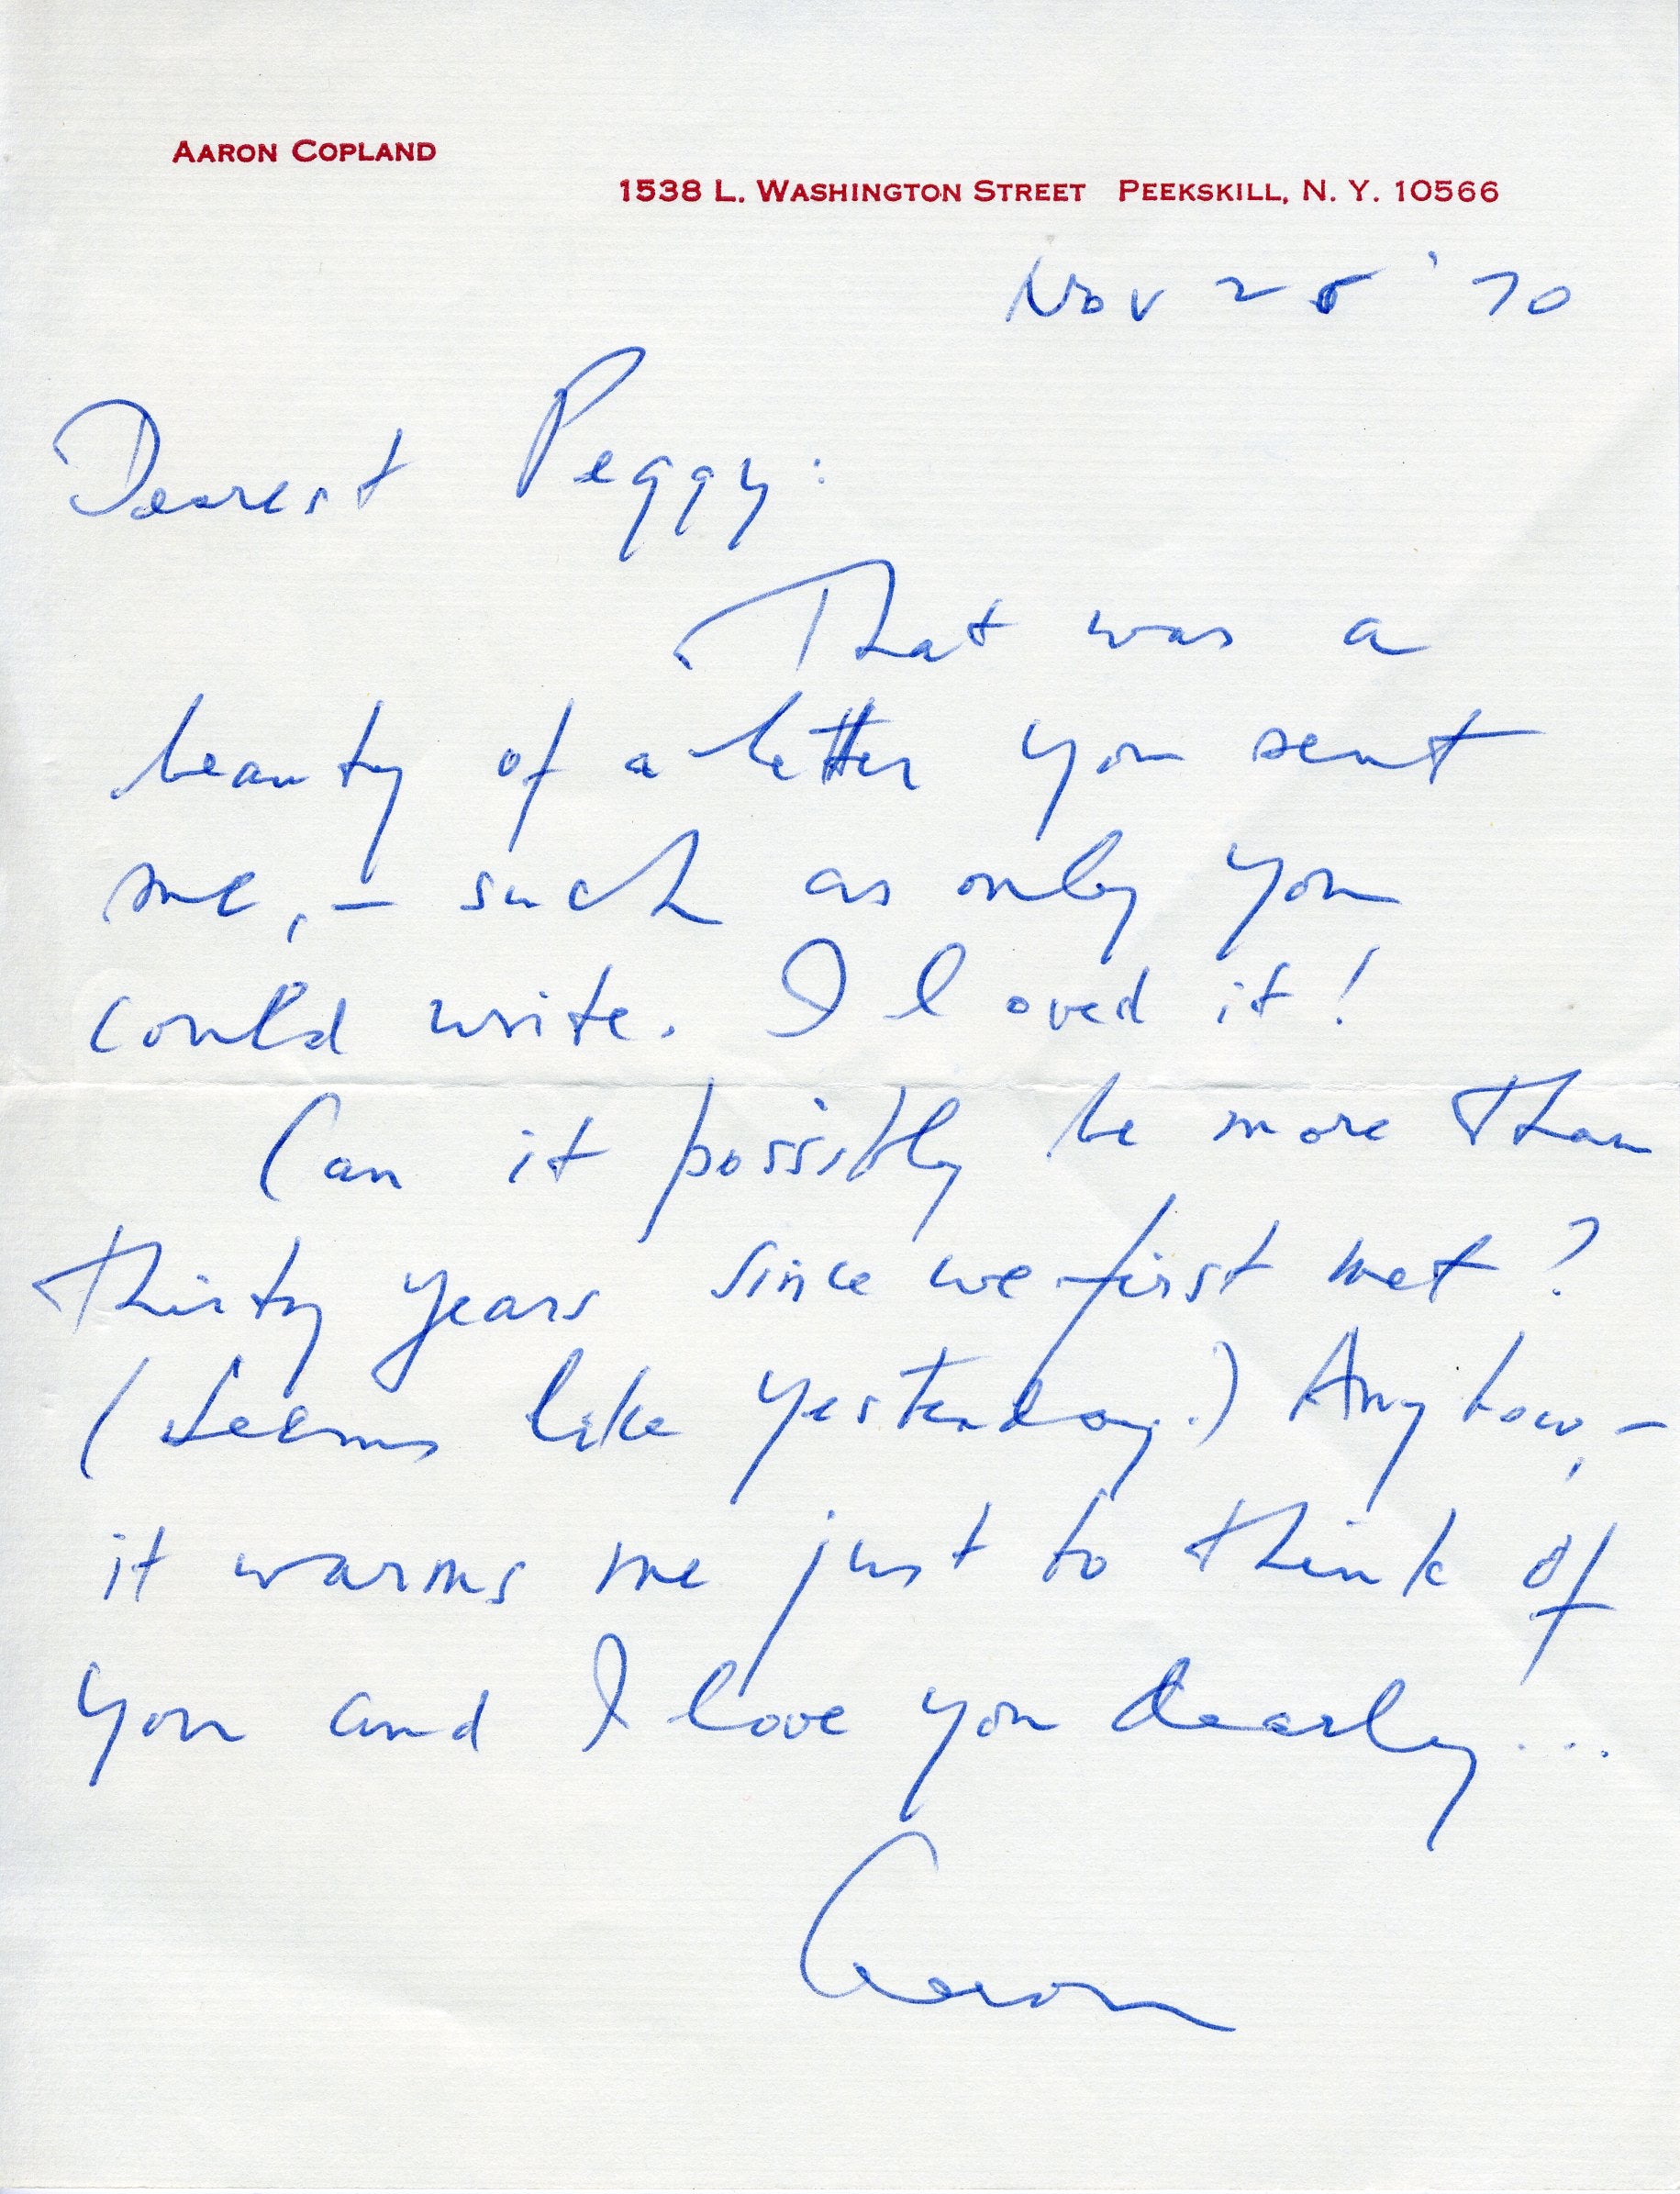 AARON COPLAND
1538 L. WASHINGTON STREET PEEKSKILL, N. Y. 10566
Nov 25 '70
Dearest Peggy:
That was a
beauty of a letter you sent
me, – such as only you
could write. I loved it!
Can it possibly be more than
thirty years since we first met?
(Seems like yesterday.) Anyhow, –
it warms me just to think of
you and I love you dearly...
Aaron